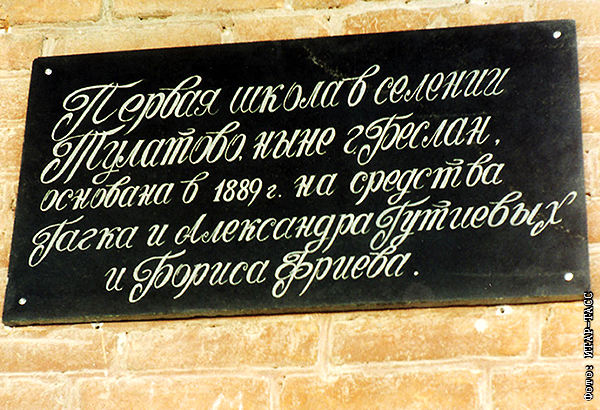 Первая школа в селении
Тулатово, ныне г. Беслан,
основана в 1889 г. на средства
Гагка и Александра Гутиевых
и Бориса Фриева.
ФОТО: ИТАР-ТАСС